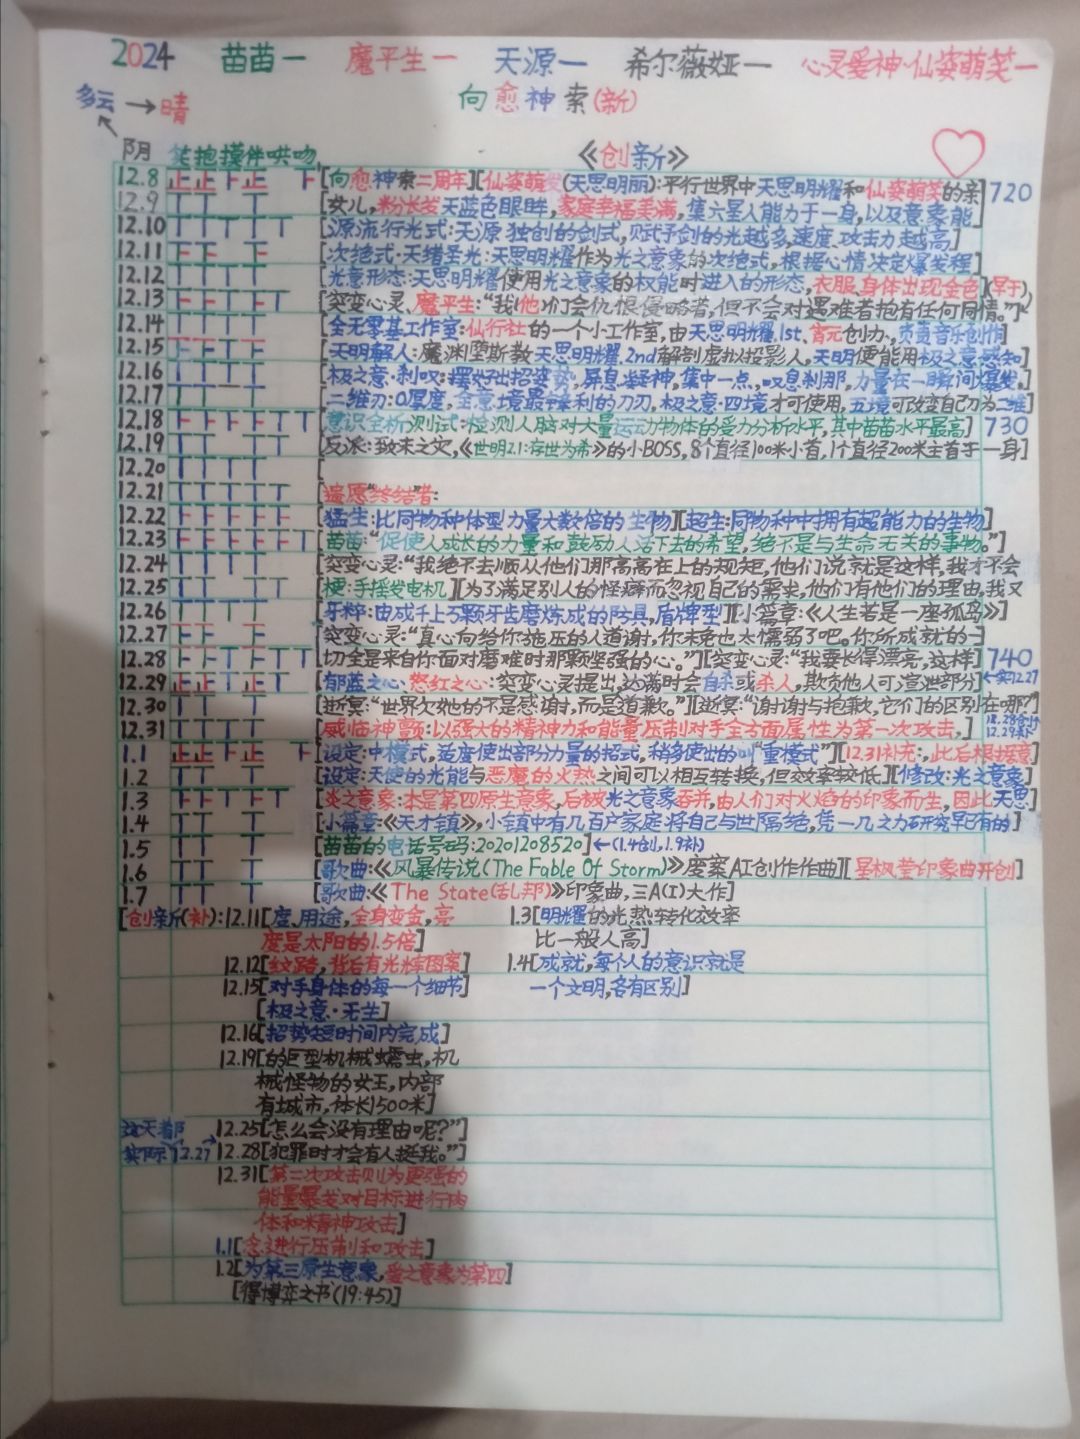 2024 苗苗一 魔平生一 天源一 希尔薇娅一 心灵爱神·仙姿萌笑一
多云→晴 向愈神索(新)
阴 笑抱摸伴哄吻 《创新》
12.8 [向愈神索二周年][仙姿萌发(天思明丽):平行世界中天思明耀和仙姿萌笑的亲 720
12.9 女儿,粉长发天蓝色眼眸,家庭幸福美满,集六星人能力于一身,以及意象能]
12.10 [源流行光式:天源独创的剑式,赋予剑的光越多,速度、攻击力越高]
12.11 [次绝式·天绪圣光:天思明耀作为光之意象的次绝式,根据心情决定爆发程]
12.12 [光意形态:天思明耀使用光之意象的权能时进入的形态,衣服、身体出现金色](早于)
12.13 [突变心灵、魔平生:“我/他们会仇恨侵略者,但不会对遇难者抱有任何同情。”]
12.14 [全无零基工作室:仙行社的一个小工作室,由天思明耀.1st、宵元创办,负责音乐创作]
12.15 [天明解人:魔渊堕斯教天思明耀.2nd解剖虚拟投影人,天明便能用极之意感知]
12.16 [极之意·刹叹:摆好出招姿势,屏息凝神,集中一点,叹息刹那,力量在一瞬间爆发,]
12.17 [二维刃:0厚度,全意境最锋利的刀刃,极之意·四境才可使用,五境可改变自己为二维]
12.18 [意识全析测试:检测人脑对大量运动物体的受力分析水平,其中苗苗水平最高] 730
12.19 [反派:致末之灾,《世明2.1:存世为希》的小BOSS,8个直径100米小首,1个直径200米主首于一身]
12.20 [
12.21 [遍愿“终结”者:
12.22 [猛生:比同物种体型力量大数倍的生物][超生:同物种中拥有超能力的生物]
12.23 [苗苗:“促使人成长的力量和鼓励人活下去的希望,绝不是与生命无关的事物。”]
12.24 [突变心灵:“我绝不去顺从他们那高高在上的规矩,他们说就是这样,我才不会
12.25 [梗:手摇发电机][为了满足别人的怪癖而忽视自己的需求,他们有他们的理由,我又
12.26 [牙粹:由成千上万颗牙齿磨炼成的防具,盾牌型][小篇章:《人生若是一座孤岛》]
12.27 [突变心灵:“真心向给你施压的人道谢,你未免也太懦弱了吧。你所成就的一
12.28 切全是来自你面对磨难时那颗坚强的心。”][突变心灵:“我要长得漂亮,这样] 740
12.29 [郁蓝之心、怒红之心:突变心灵提出,达满时会自杀或杀人,欺负他人可宣泄部分] ←实12.27
12.30 [逝冥:“世界欠她的不是感谢,而是道歉。”][逝冥:“谢谢与抱歉,它们的区别在哪?]
12.31 [威临神颤:以强大的精神力和能量压制对手全方面属性为第一次攻击,] 12.28创 12.29补
1.1 [设定:中模式,适度使出部分力量的招式,稍多使出的叫“重模式”][12.31补充:,此后根据意]
1.2 [设定:天使的光能与恶魔的火热之间可以相互转换,但效率较低][修改:光之意象]
1.3 [炎之意象:本是第四原生意象,后被光之意象吞并,由人们对火焰的印象而生,因此天思]
1.4 [小篇章:《天才镇》,小镇中有几百户家庭将自己与世隔绝,凭一几之力研究早已有的]
1.5 [苗苗的电话号码:20201208520]←(1.4创,1.9补)
1.6 [歌曲:《风暴传说(The Fable Of Storm)》废案AI创作作曲][星枫莹印象曲开创]
1.7 [歌曲:《The State(乱邦)》印象曲,三A(I)大作]
[创新(补):12.11[度、用途,全身变金,亮 1.3[明耀的光热转化效率
度是太阳的1.5倍] 比一般人高]
12.12[纹路,背后有光辉图案] 1.4[成就,每个人的意识就是
12.15[对手身体的每一个细节] 一个文明,各有区别]
[极之意·无生]
12.16[招势短时间内完成]
12.19[的巨型机械蠕虫,机
械怪物的女王,内部
有城市,体长1500米]
这天着 12.25[怎么会没有理由呢?”]
实际12.27→ 12.28[犯罪时才会有人挺我。”]
12.31[第二次攻击则为更强的
能量暴发对目标进行肉
体和精神攻击]
1.1[念进行压制和攻击]
1.2[为第三原生意象,爱之意象为第四]
[得博弈之书(19:45)]